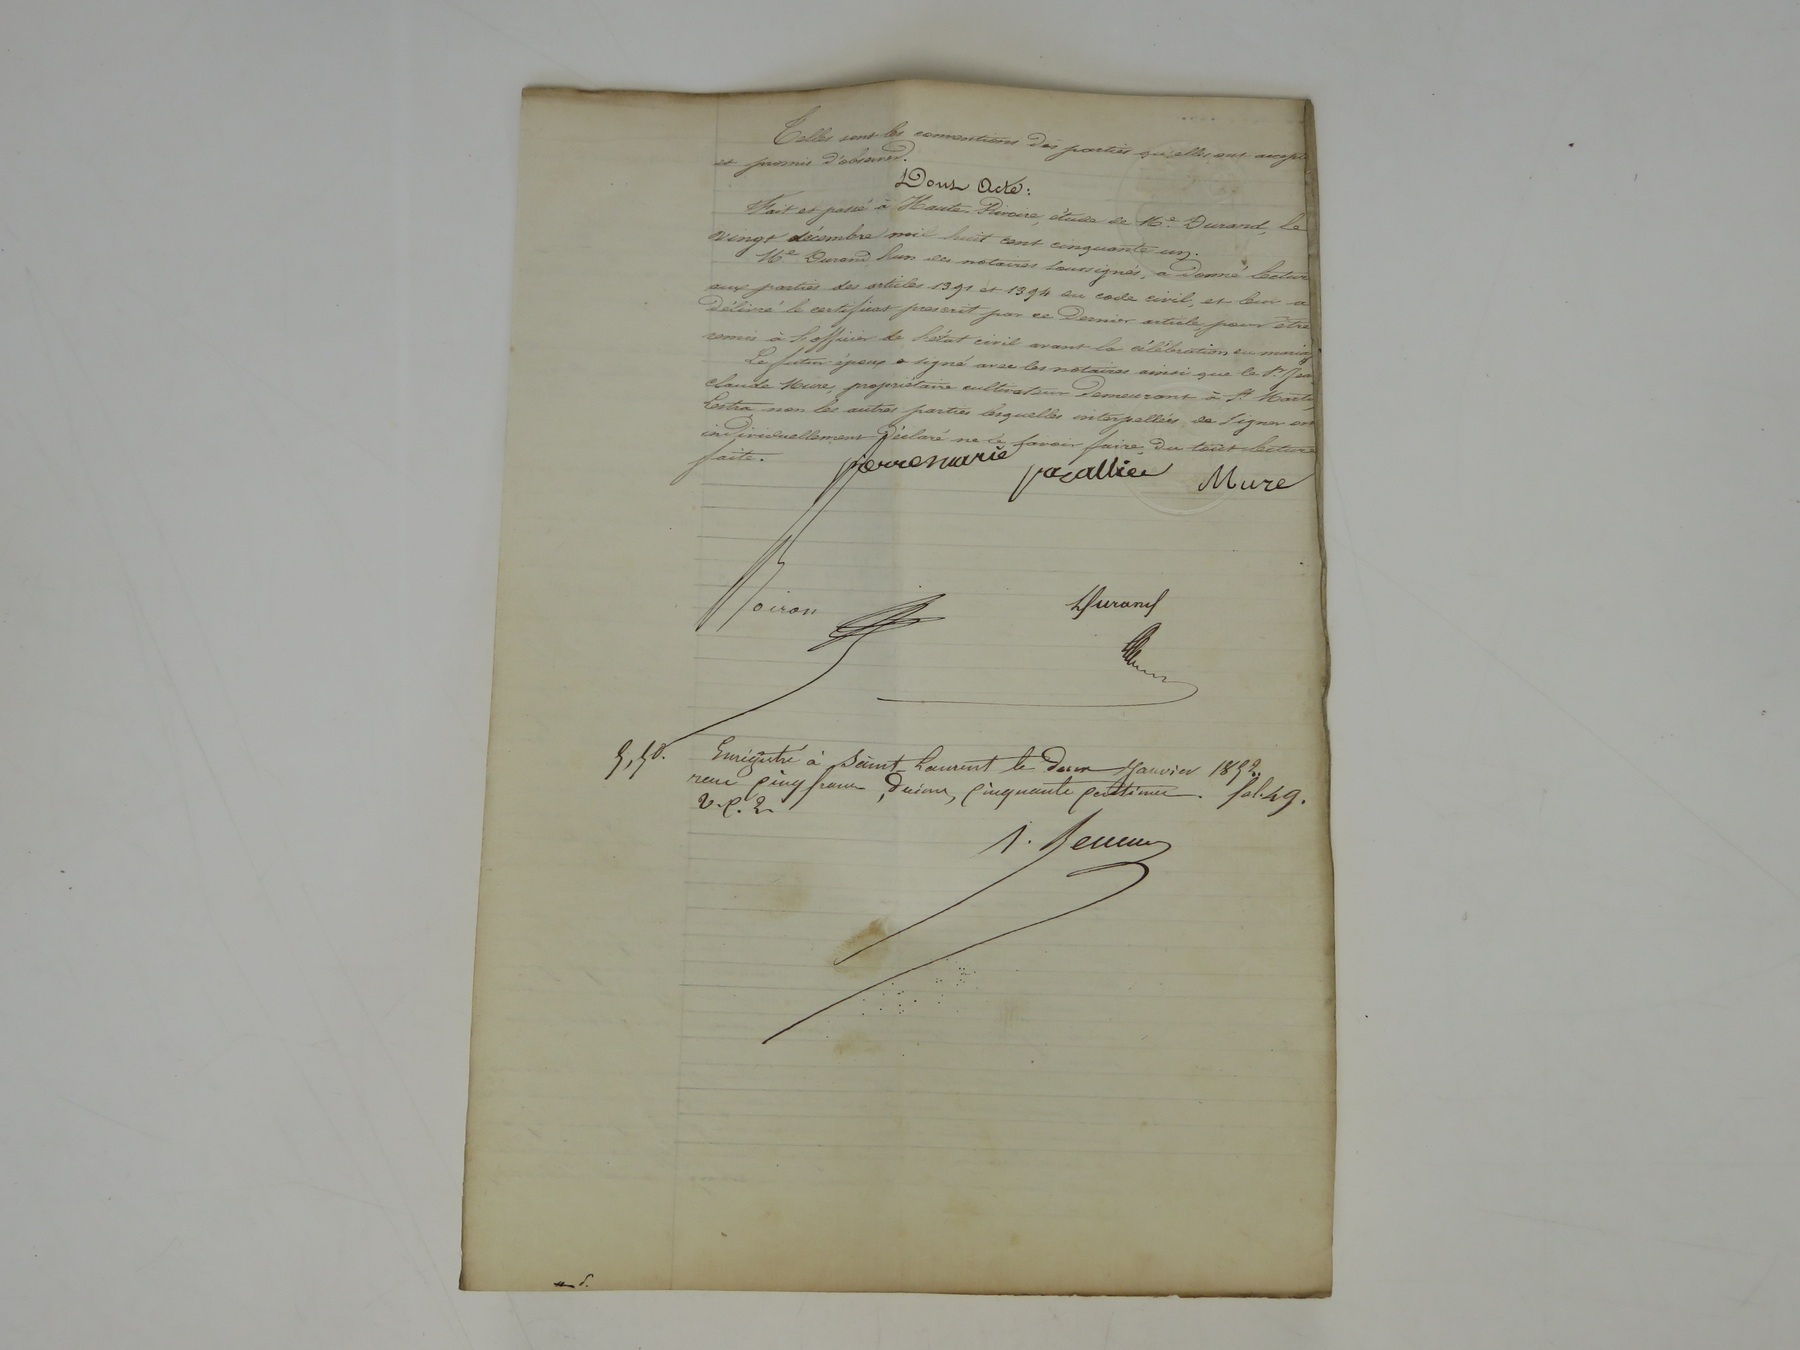 Telles sont les conventions des parties qu'elles ont accepté
et promis d'observer.
Dont Acte:
Fait et passé à Haute-Rivoire, étude de Me. Durand, le
vingt décembre mil huit cent cinquante un.
Me Durand l'un des notaires soussignés, a donné lecture
aux parties des articles 1391 et 1394 du code civil, et leur a
délivré le certificat prescrit par ce dernier article, pour être
remis à l'officier de l'état civil avant la célébration du mariage
Le futur époux a signé avec les notaires ainsi que le Sr. Jean
claude Mure, propriétaire cultivateur demeurant à St. Martin
Lestra, non les autres parties lesquelles interpellées de signer ont
individuellement déclaré ne le savoir faire, du tout lecture
faite.
pierre marie Mure
Durand
5,50. Enrégistré à Saint Laurent le deux Janvier 1852,
reçu cinq francs, décime, cinquante centimes. fol. 49.
v. c. 2